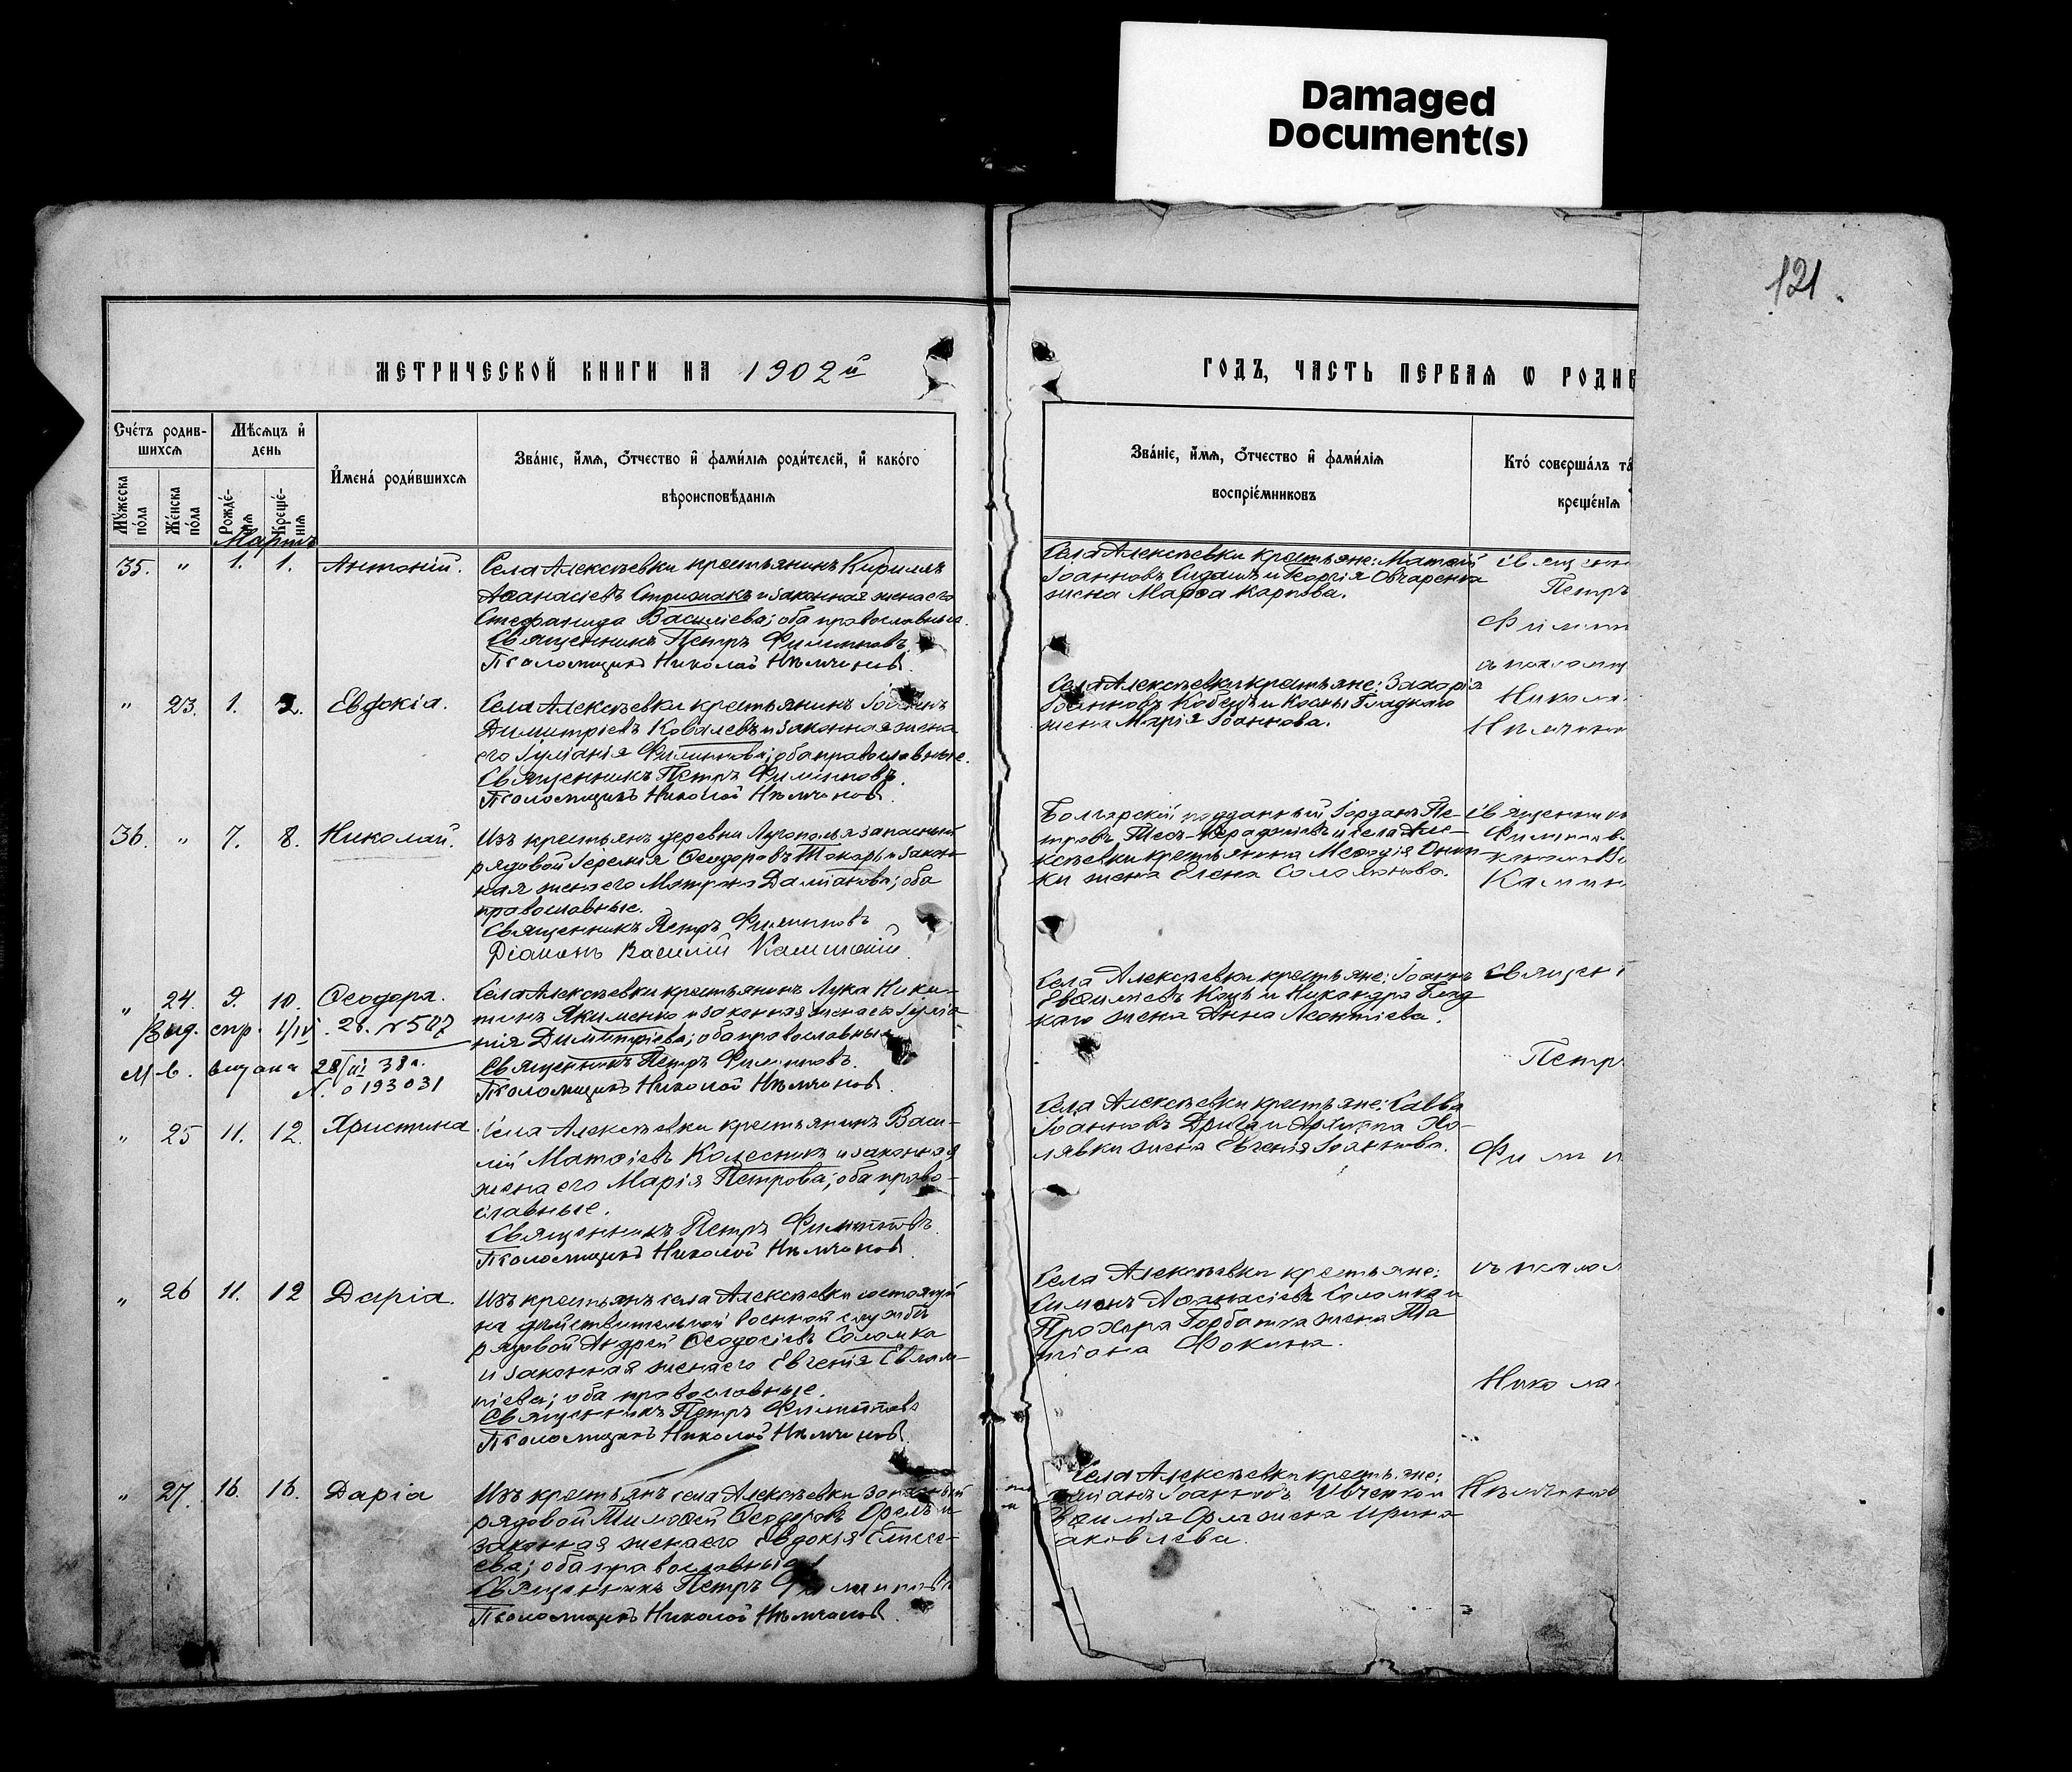 Damaged
Document(s)
121.
МЕТРИЧЕСКОЙ КНИГИ НА 1902й
Счетъ родив-
шихся
Мѣсяцъ и
день
Мужеска
пола
Женска
пола
Рожде-
нія
Креще-
нія
Имена родившихся
Званіе, имя, отчество и фамилія родителей, и какого
вѣроисповѣданія
Мартъ
35. " 1. 1. Антоній.
Села Алексѣевки крестьянинъ Кириллъ
Аѳанасіевъ Стрижакъ и законная жена его
Стефанида Василіева; оба православные.
Священникъ Петръ Филипповъ
Псаломщикъ Николай Нѣмчиновъ.
" 23. 1. 2. Евдокіа.
Села Алексѣевки крестьянинъ Іоаннъ
Димитріевъ Ковалевъ и законная жена
его Іуліанія Филиппова; оба православные.
Священникъ Петръ Филипповъ.
Псаломщикъ Николай Нѣмчиновъ.
36. " 7. 8. Николай.
Изъ крестьянъ деревни запасный
рядовой Іеремія Ѳеодоровъ Токарь и закон-
ная жена его Матрона Даміанова; оба
православные.
Священникъ Петръ Филипповъ
Діаконъ Василій
" 24. 9. 10. Ѳеодора.
Выд. спр. 1/IV. 26. №507
М. в. видана 28/III 38 г.
N. 0193031
Села Алексѣевки крестьянинъ Лука Ники-
тинъ Якименко и законная жена его Іуліа-
нія Димитріева; оба православные
Священникъ Петръ Филипповъ.
Псаломщикъ Николай Нѣмчиновъ.
" 25 11. 12. Христина
Села Алексѣевки крестьянинъ Васи-
лій Матѳіевъ Колесникъ и законная
жена его Марія Петрова; оба право-
славные.
Священникъ Петръ Филипповъ.
Псаломщикъ Николай Нѣмчиновъ.
" 26 11. 12 Даріа.
Изъ крестьянъ села Алексѣевки состоящій
на дѣйствительной военной службѣ
рядовой Андрей Ѳеодосіевъ Соломка
и законная жена его Евгенія Евлам-
піева; оба православные.
Священникъ Петръ Филипповъ
Псаломщикъ Николай Нѣмчиновъ.
" 27. 16. 16. Даріа
Изъ крестьянъ села Алексѣевки запасный
рядовой Тимоѳей Ѳеодоровъ Орелъ и
законная жена его Евдокія Елисе-
ева; оба православные
Священникъ Петръ Филипповъ
Псаломщикъ Николай Нѣмчиновъ.
ГОДЪ, ЧАСТЬ ПЕРВАЯ Ѡ РОДИВ
Званіе, имя, отчество и фамилія
воспріемниковъ
Кто совершалъ та
крещенія
Села Алексѣевки крестьяне: Матѳей
Іоанновъ и Георгія Овчаренка
жена Марѳа Карпова.
Села Алексѣевки крестьяне: Захарія
Іоанновъ Кобецъ и Космы Гладкаго
жена Марія Іоаннова.
Болгарскій подданный Іорданъ Пе-
тровъ и села Але-
ксѣевки крестьянина Меѳодія
ки жена Елена Соломонова.
Села Алексѣевки крестьяне: Іоаннъ
Евѳиміевъ Коцъ и Никандра Глад
каго жена Анна Леонтіева.
Села Алексѣевки крестьяне: Савва
Іоанновъ Дрига и Архиппа Хо-
лявки жена Евгенія Іоаннова.
Села Алексѣевки крестьяне:
Симонъ Аѳанасіевъ Соломка и
Прохора Горбатка жена Та
тіана Фокина.
Села Алексѣевки крестьяне:
Іоанновъ Ивченко и
Орла жена Ирина
аковлева.
Священн
Петръ
Филипп
и псаломщ
Никола
Нѣмчинов
Священник
Филиппов
Камин
Священ
Петр
Филип
и псалом
Никола
Нѣмчинов